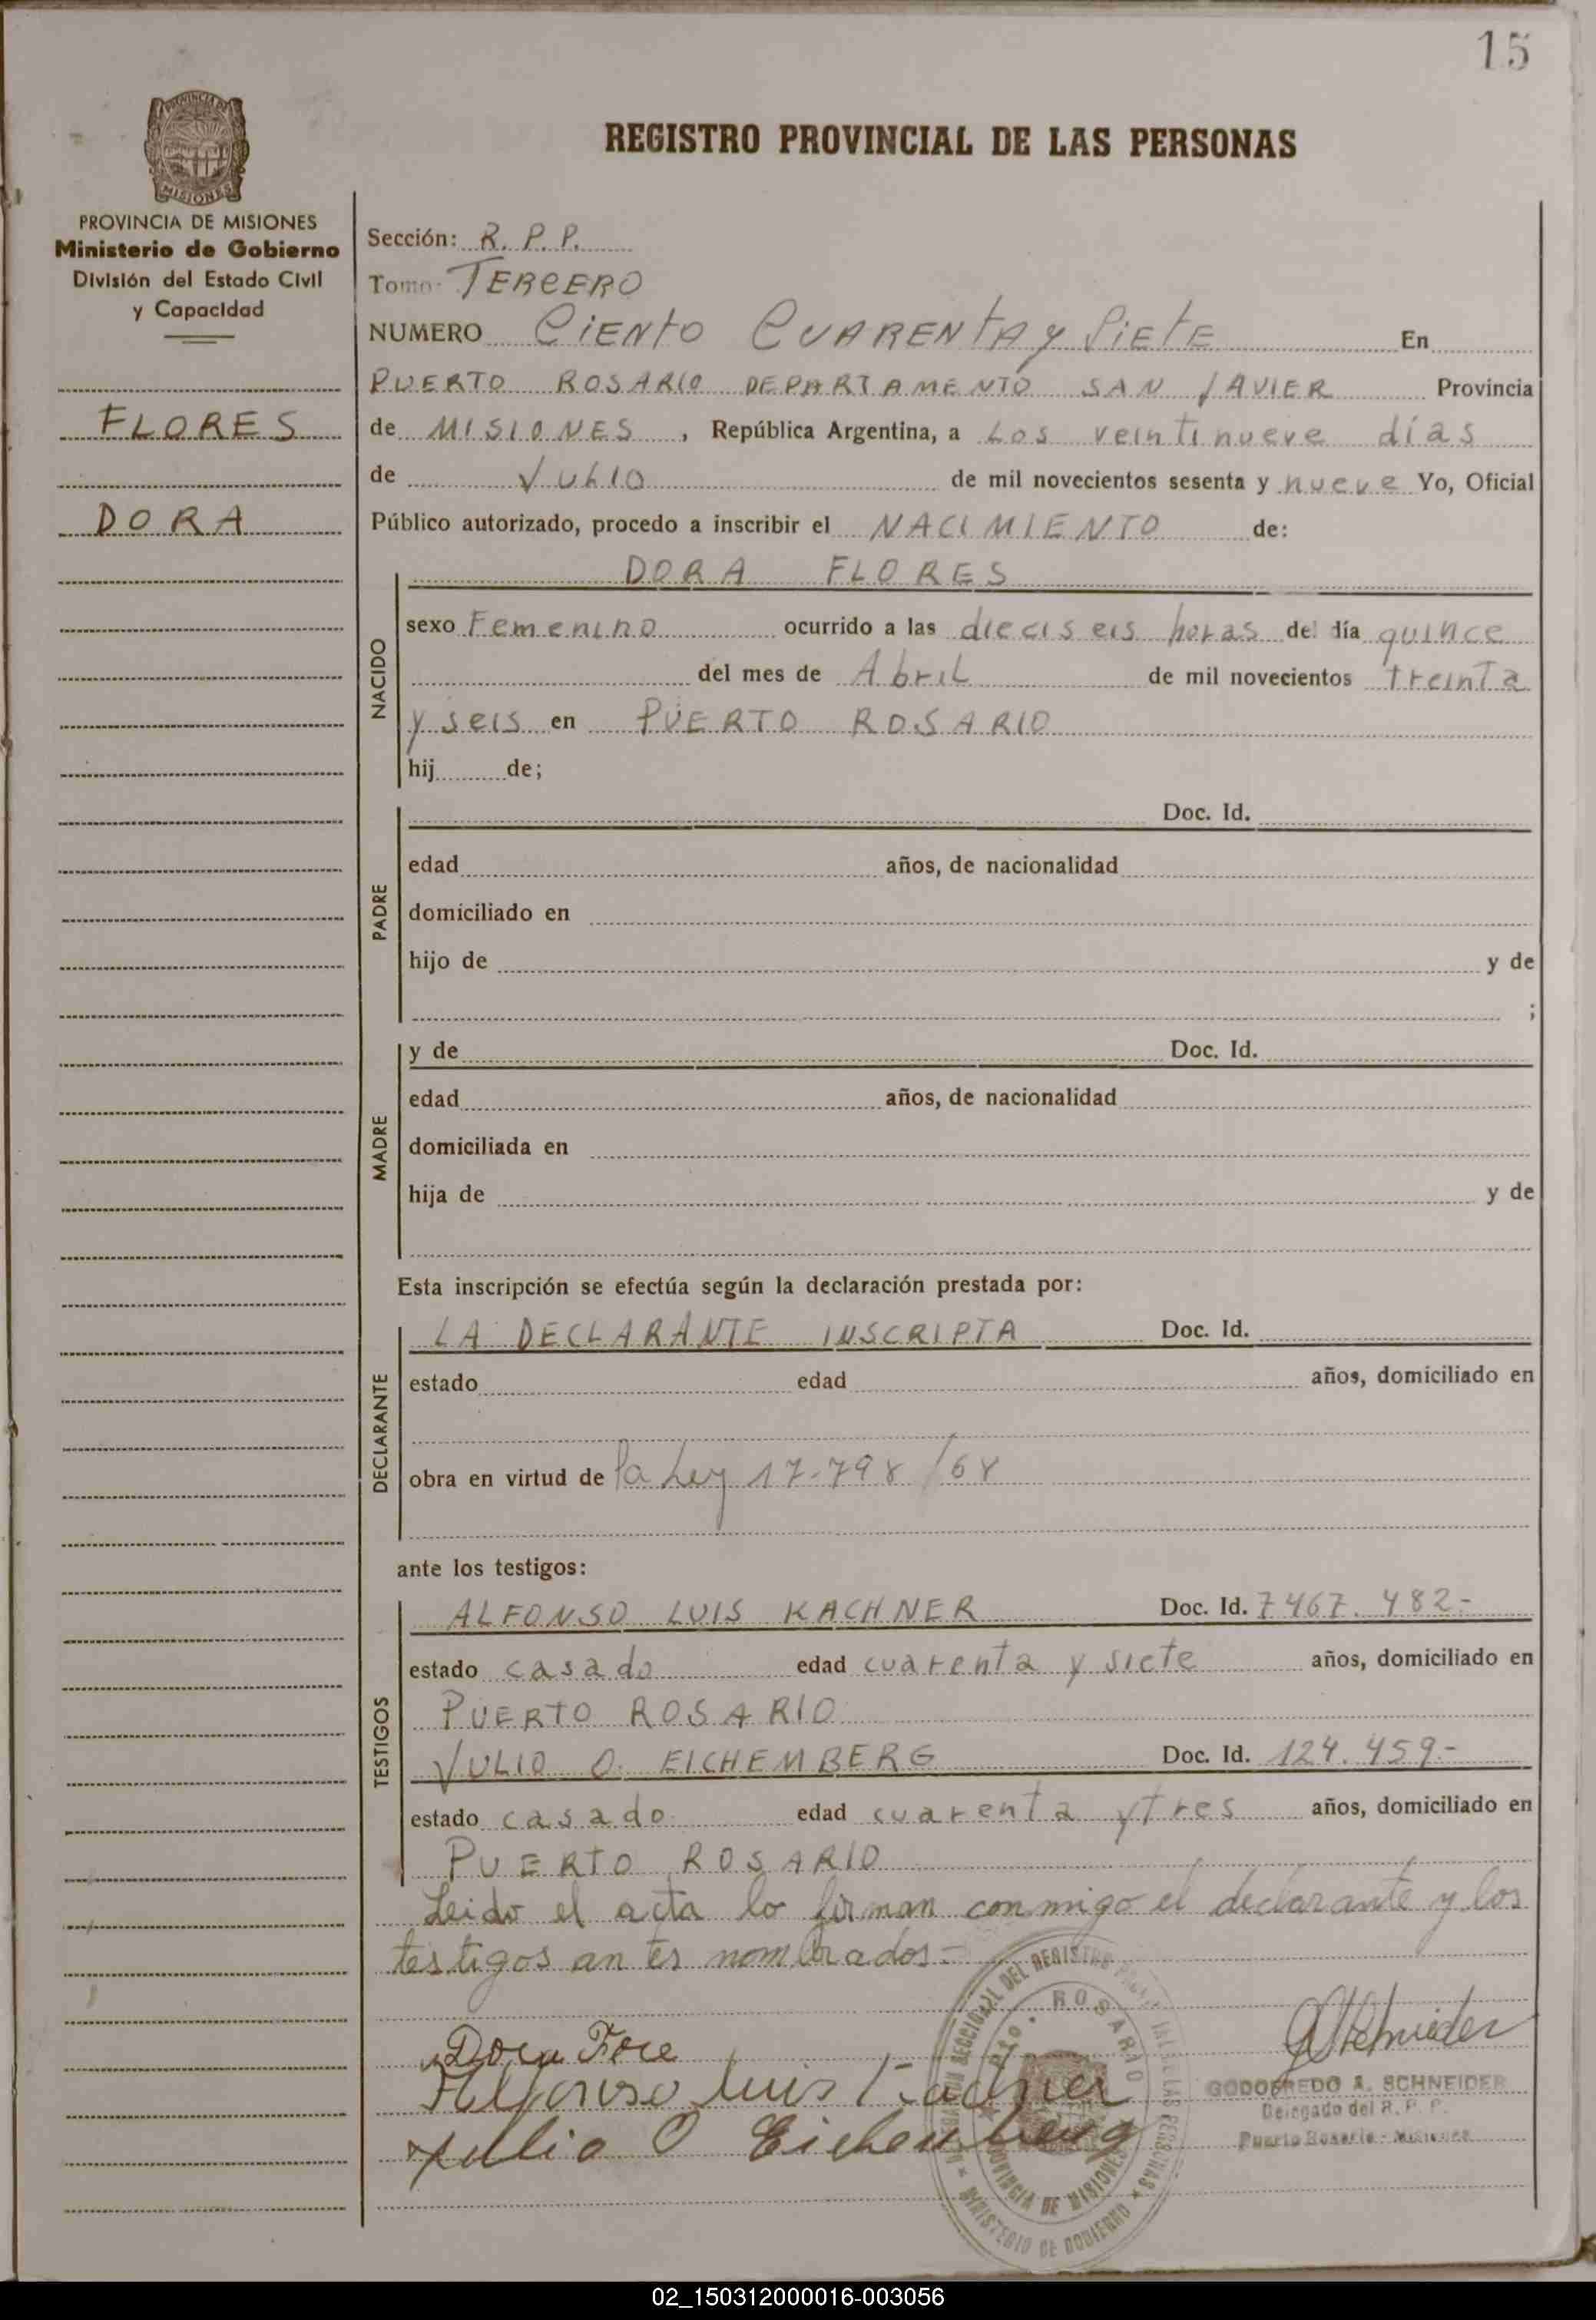 15
PROVINCIA DE MISIONES
REGISTRO PROVINCIAL DE LAS PERSONAS
PROVINCIA DE MISIONES
Ministerio de Gobierno
División del Estado Civil
y Capacidad
FLORES
DORA
Sección: R. P. P.
Tomo TERCERO
NUMERO CIENTO CUARENTA y SiETE En
PUERTO ROSARIO DEPARTAMENTO SAN JAVIER Provincia
de MISIONES, República Argentina, a Los veintinueve días
de JULIO de mil novecientos sesenta y nueve Yo, Oficial
Público autorizado, procedo a inscribir el NACIMIENTO de:
DORA FLORES
NACIDO
sexo Femenino ocurrido a las dieciseis horas del día quince
del mes de Abril de mil novecientos treinta
y seis en PUERTO ROSARIO
hij de;
PADRE
Doc. Id.
edad años, de nacionalidad
domiciliado en
hijo de y de
;
MADRE
y de Doc. Id.
edad años, de nacionalidad
domiciliada en
hija de y de
Esta inscripción se efectúa según la declaración prestada por:
DECLARANTE
LA DECLARANTE INSCRIPTA Doc. Id.
estado edad años, domiciliado en
obra en virtud de la Ley 17-798/68
ante los testigos:
TESTIGOS
ALFONSO LUIS KACHNER Doc. Id. 7467.482-
estado casado edad cuarenta y siete años, domiciliado en
PUERTO ROSARIO
JULIO O. EICHEMBERG Doc. Id. 124.459-
estado casado edad cuarenta y tres años, domiciliado en
PUERTO ROSARIO
Leido el acta lo firman conmigo el declarante y los
testigos antes nombrados-
Dora
Alfonso Luis Kachner
Julio O Eichemberg
GODOFREDO A. SCHNEIDER
Delegado del R. P. P.
Puerto Rosario - Misiones
Pto. ROSARIO
PROVINCIA DE MISIONES
MINISTERIO DE GOBIERNO
02_150312000016-003056